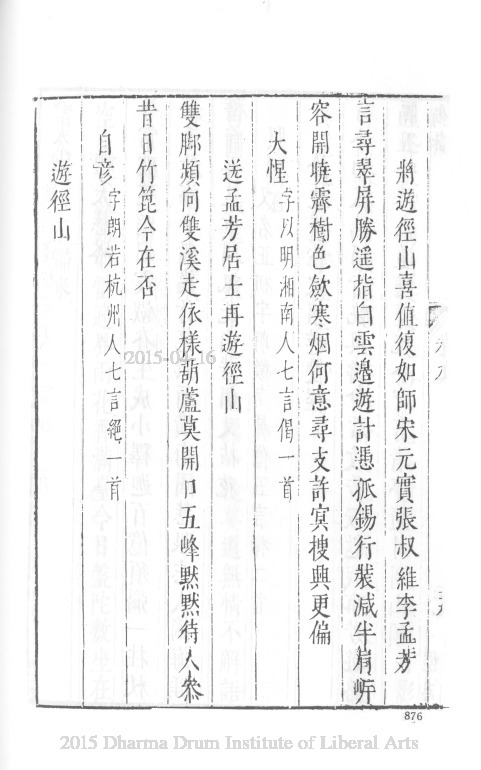 將遊徑山喜值復如師宋元實張叔維李孟芳
言尋翠屏勝遥指白雲邉遊計憑孤錫行裝減半肩㟁
容開曉霽樹色斂寒烟何意尋支許冥搜興更偏
大惺字以明湘南人七言偈一首
送孟芳居士再遊徑山
雙脚頻向雙溪走依樣葫蘆莫開口五峰黙黙待人叅
昔日竹箆今在否
自彦字朗若杭州人七言絕一首
遊徑山
876
2015-04-16
2015 Dharma Drum Institute of Liberal Arts